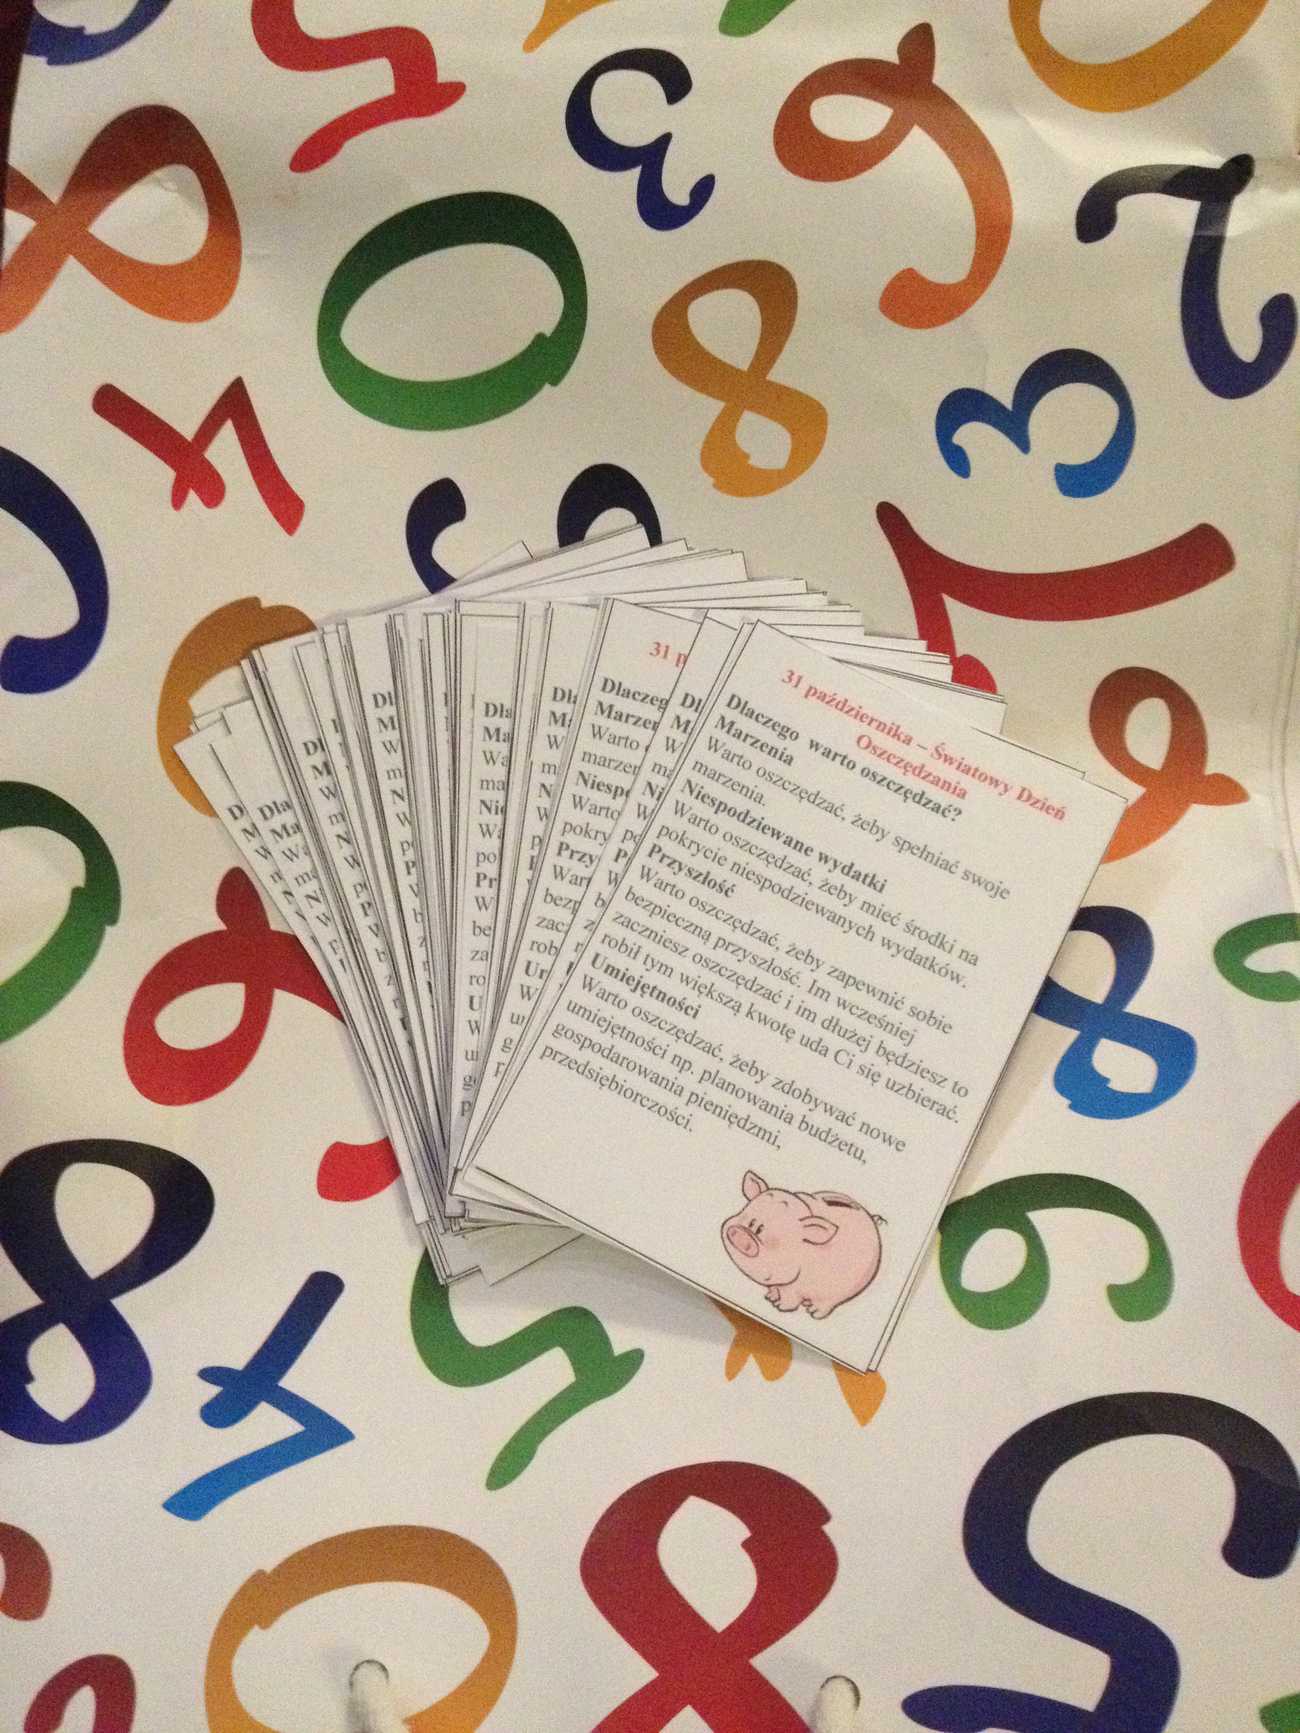 31 października – Światowy Dzień
Oszczędzania
Dlaczego warto oszczędzać?
Marzenia
Warto oszczędzać, żeby spełniać swoje
marzenia.
Niespodziewane wydatki
Warto oszczędzać, żeby mieć środki na
pokrycie niespodziewanych wydatków.
Przyszłość
Warto oszczędzać, żeby zapewnić sobie
bezpieczną przyszłość. Im wcześniej
zaczniesz oszczędzać i im dłużej będziesz to
robił tym większą kwotę uda Ci się uzbierać.
Umiejętności
Warto oszczędzać, żeby zdobywać nowe
umiejętności np. planowania budżetu,
gospodarowania pieniędzmi,
przedsiębiorczości.